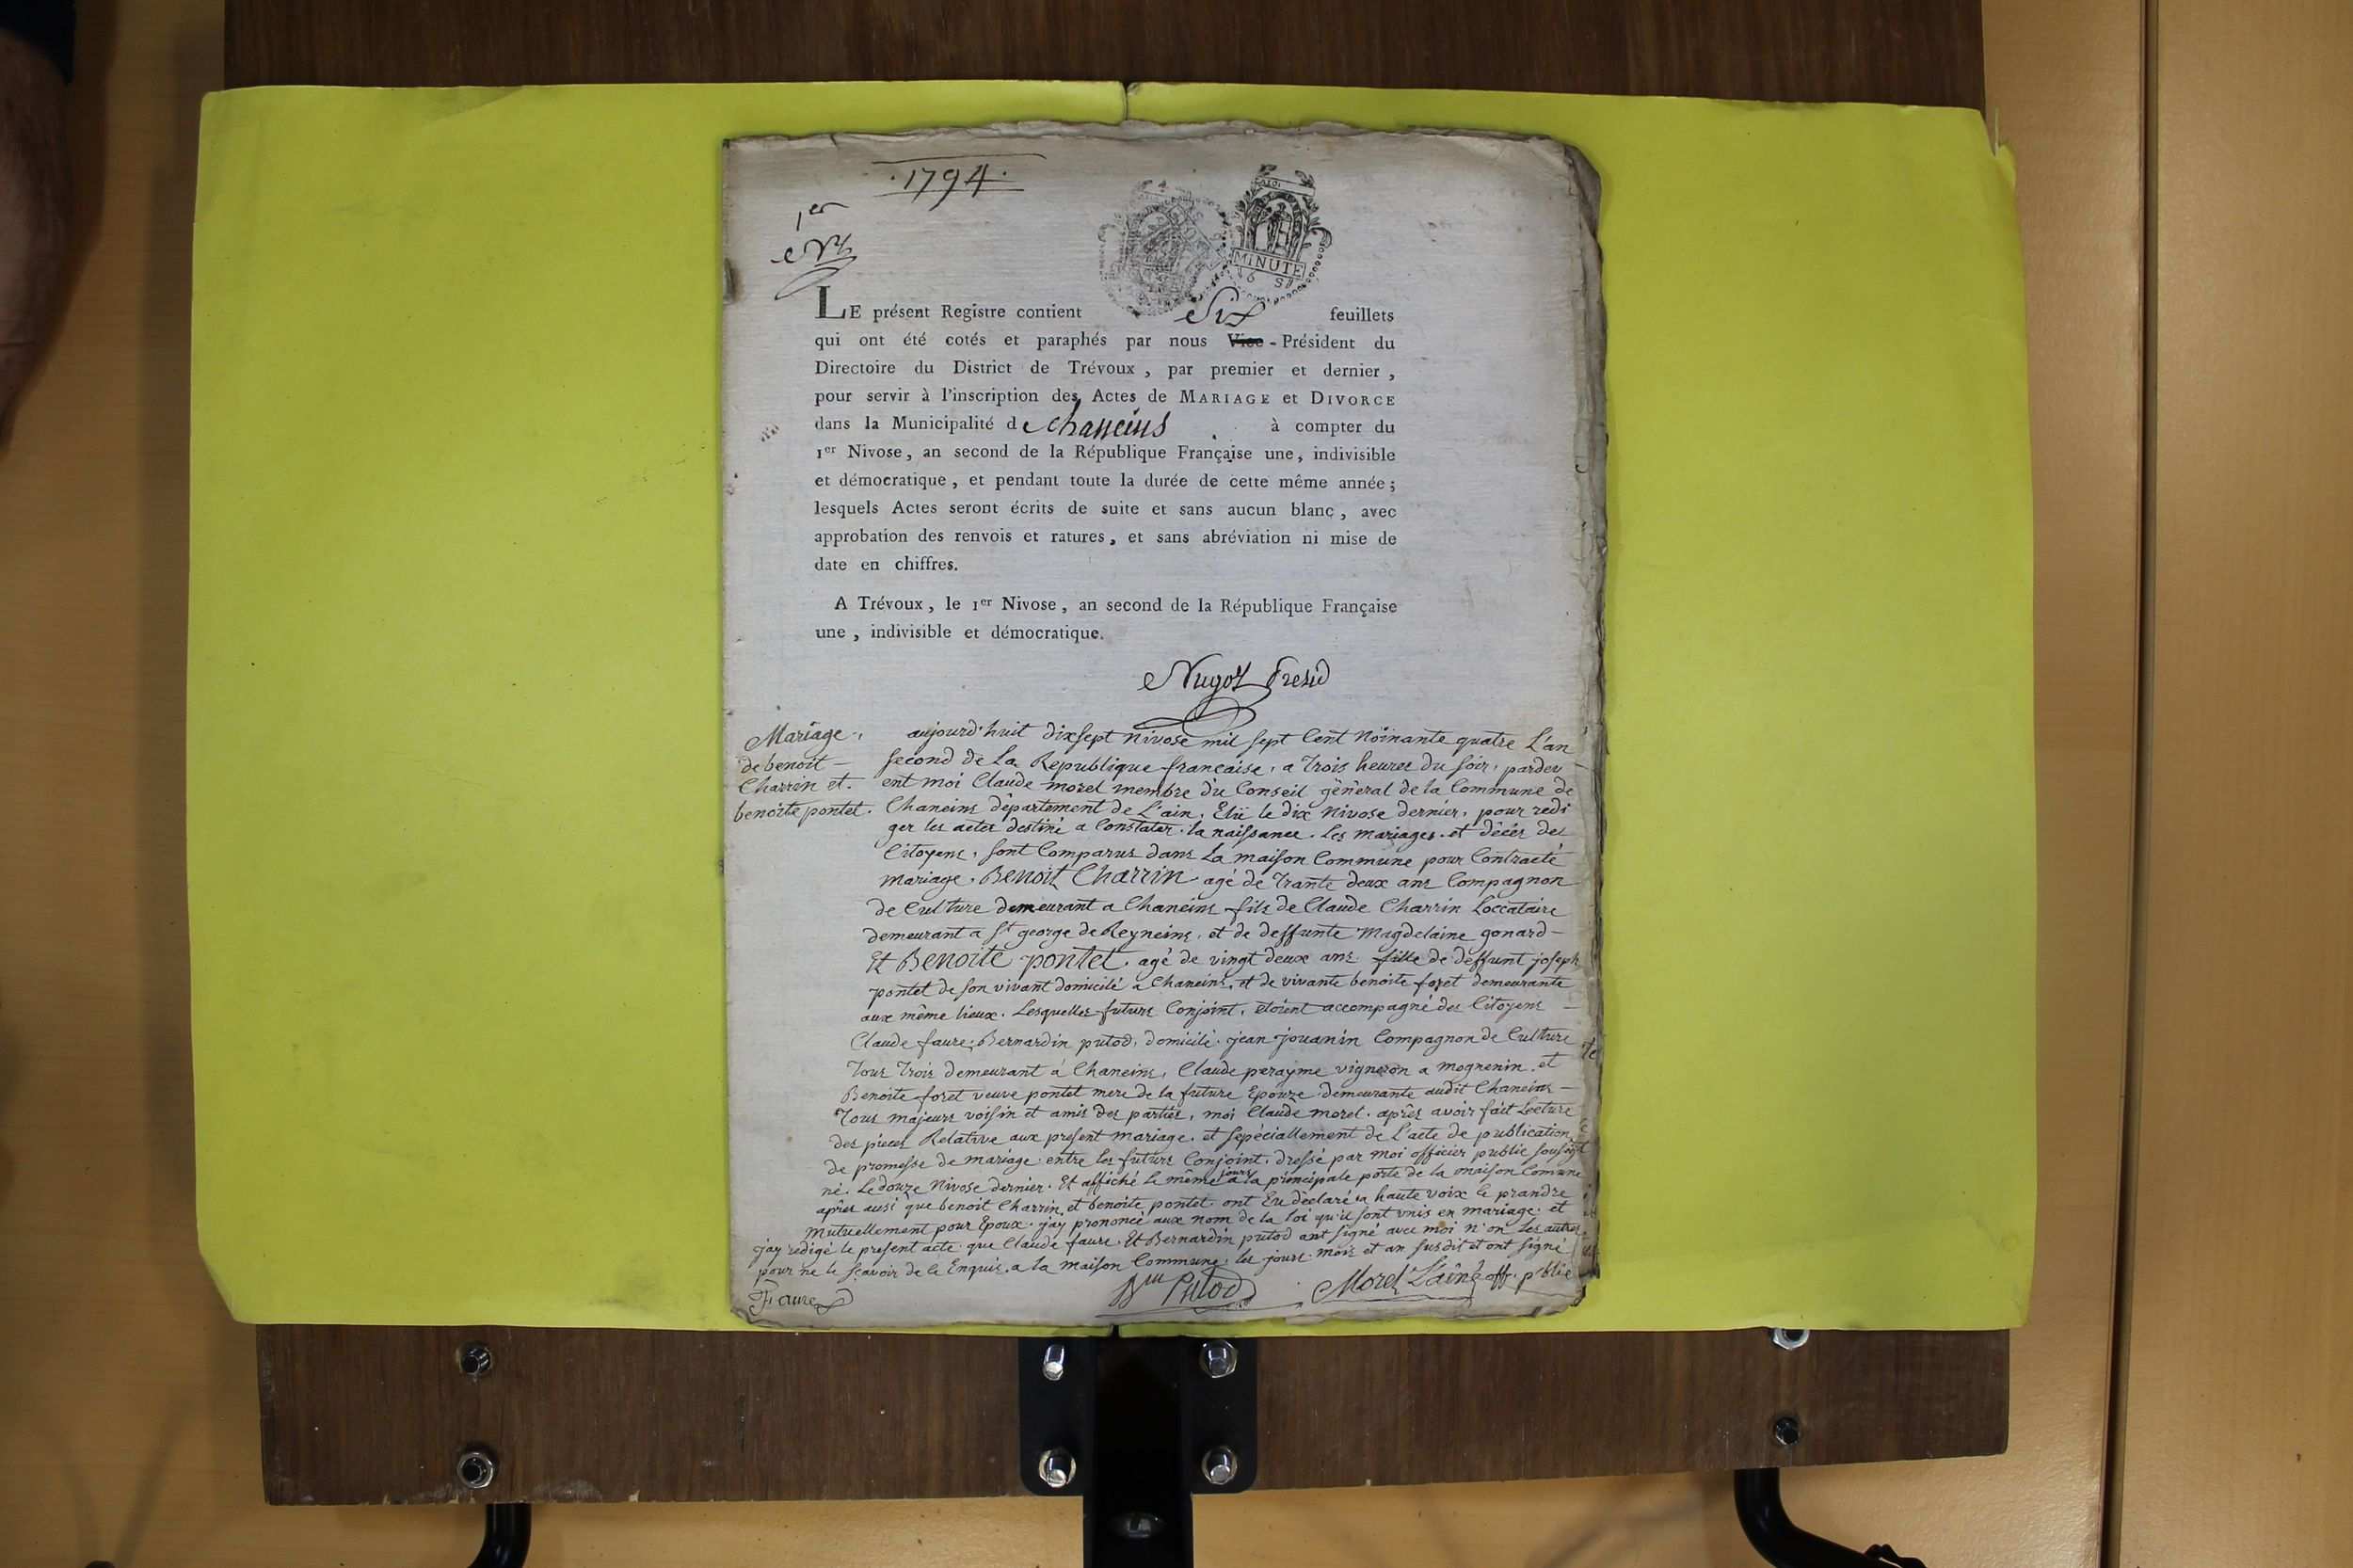 .1794.
1er
MINUTE
6 S
LE présent Registre contient Six feuillets
qui ont été cotés et paraphés par nous Vice - Président du
Directoire du District de Trévoux , par premier et dernier ,
pour servir à l'inscription des Actes de MARIAGE et DIVORCE
dans la Municipalité de chaneins . à compter du
1er Nivose, an second de la République Française une, indivisible
et démocratique , et pendant toute la durée de cette même année ;
lesquels Actes seront écrits de suite et sans aucun blanc , avec
approbation des renvois et ratures, et sans abréviation ni mise de
date en chiffres.
A Trévoux , le 1er Nivose, an second de la République Française
une , indivisible et démocratique.
Presid
Mariage.
de benoit -
Charrin et.
benoite pontet.
aujourd'huit dixsept Nivose mil sept Cent Noinante quatre L'an
second de La Republique française, a trois heures du soir, parder -
ent moi Claude morel membre du Conseil général de la Commune de
Chaneins département de L'ain, Elü le dix Nivose dernier, pour redi
ger les actes destiné a Constater. la naissance. les mariages. et décés des
Citoyens, sont Comparus dans La maison Commune pour Contracté
mariage. Benoit Charrin agé de trante deux ans Compagnon
de Culture demeurant a Chaneins fils de Claude Charrin Loccataire
demeurant a St george de Reyneins, et de deffunte Magdelaine gonard -
Et Benoite pontet. agé de vingt deux ans fille de deffunt joseph
pontet de son vivant domicilé a Chaneins, et de vivante benoite foret demeurante
aux même lieux. Lesquelles futurs Conjoint, étoient accompagné des Citoyens -
Claude faure, Bernardin putod, domicilé. jean jouanin Compagnon de Culture
tous trois demeurant à Chaneins, Claude perayme vigneron a mognenin. et
Benoite foret veuve pontet mere de la future Epouze demeurante audit Chaneins -
Tous majeurs voisin et amis des parties, moi Claude morel. aprés avoir fait Lecture
des pieces Relative aux present mariage. et sepéciallement de L'acte de publication
de promesse de mariage entre les futurs Conjoint. dressé par moi officier public sousig
né. Le douze Nivose dernier. Et affiché le même jours a la principale porte de la maison Comune
aprés ausi que benoit Charrin et benoite pontet ont Eu déclaré a haute voix le prandre
mutuellement pour Epoux. j'ay prononcé aux nom de la loi qu'il sont unis en mariage. et
j'ay redigé le present acte que Claude faure. Et Bernardin putod ant signé avec moi n'on Les autres
pour ne le sçavoir de ce Enquis. a la maison Commune les jours. mois et an susdit et ont signé
Faure
Putod
Morel L'ainé off. public